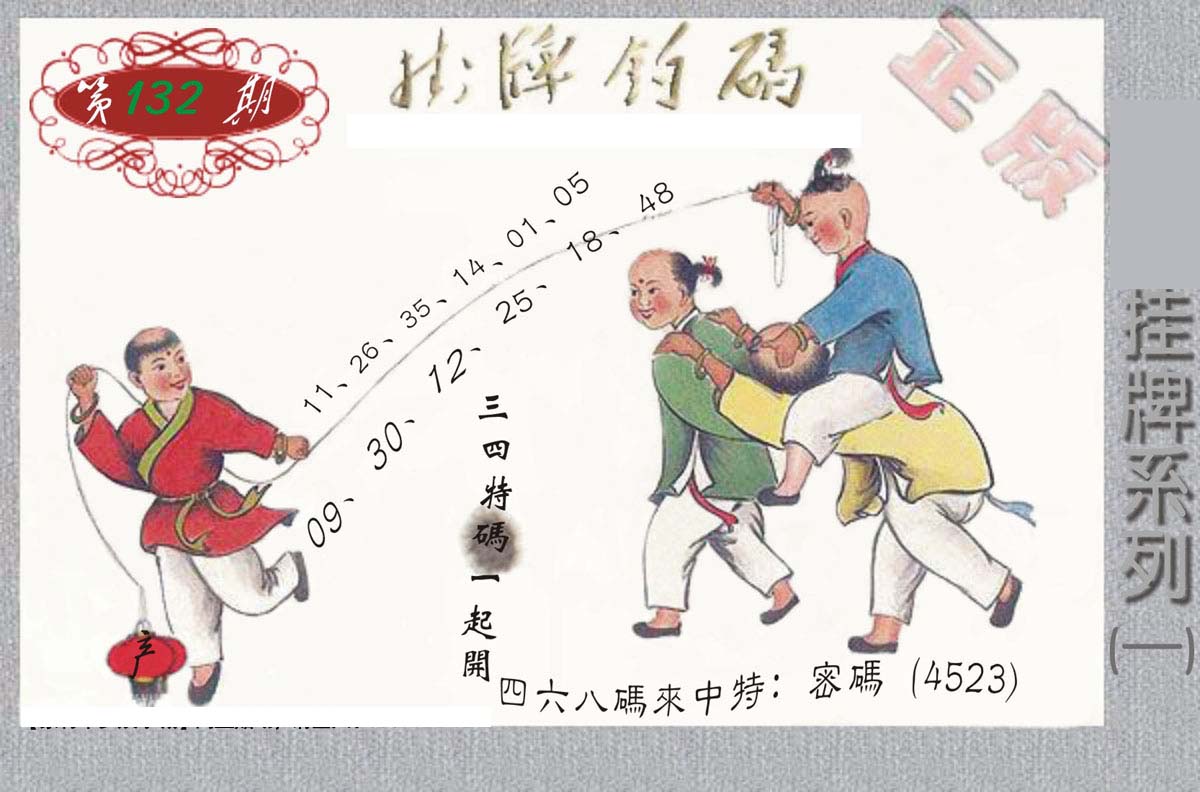 第132期
掛牌釣碼
正版
11、26、35、14、01、05
09、30、12、25、18、48
三四特碼一起開
产
四六八碼來中特：密碼（4523）
挂牌系列(一)